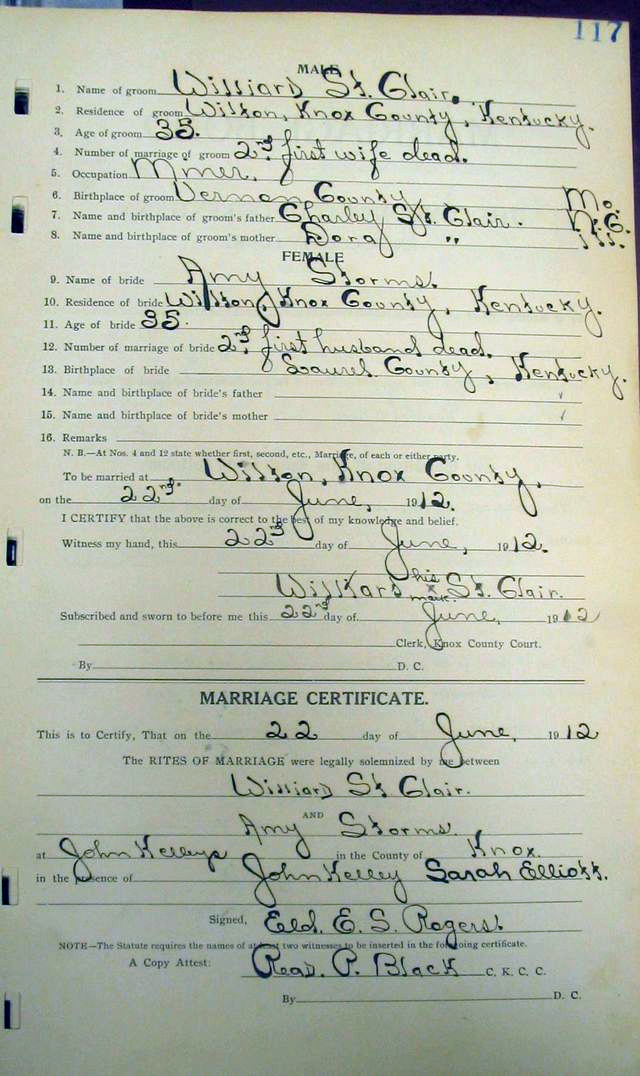 117
MALE
1. Name of groom Williard St. Clair.
2. Residence of groom Wilton, Knox County, Kentucky.
3. Age of groom 35.
4. Number of marriage of groom 2nd, first wife dead.
5. Occupation Miner.
6. Birthplace of groom Vernon County Mo.
7. Name and birthplace of groom's father Charley St. Clair. N.C.
8. Name and birthplace of groom's mother Dora " Ill.
FEMALE
9. Name of bride Amy Storms.
10. Residence of bride Wilton, Knox County, Kentucky.
11. Age of bride 35.
12. Number of marriage of bride 2nd, first husband dead.
13. Birthplace of bride Laurel County, Kentucky.
14. Name and birthplace of bride's father
15. Name and birthplace of bride's mother
16. Remarks
N. B.—At Nos. 4 and 12 state whether first, second, etc., Marriage, of each or either party.
To be married at Wilton, Knox County,
on the 22nd. day of June, 1912.
I CERTIFY that the above is correct to the best of my knowledge and belief.
Witness my hand, this 22nd day of June, 1912.
his
Williard x St. Clair.
mark.
Subscribed and sworn to before me this 22nd day of June, 1912
Clerk, Knox County Court.
By D. C.
MARRIAGE CERTIFICATE.
This is to Certify, That on the 22 day of June, 1912
The RITES OF MARRIAGE were legally solemnized by me between
Williard St Clair.
AND
Amy Storms.
at John Kelleys in the County of Knox.
in the presence of John Kelley Sarah Elliott.
Signed, Eld. E. S. Rogers.
NOTE—The Statute requires the names of at least two witnesses to be inserted in the foregoing certificate.
A Copy Attest: Read. P. Black C. K. C. C.
By D. C.